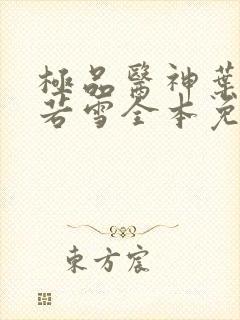 極品醫神葉
若雪全本免
東方宸